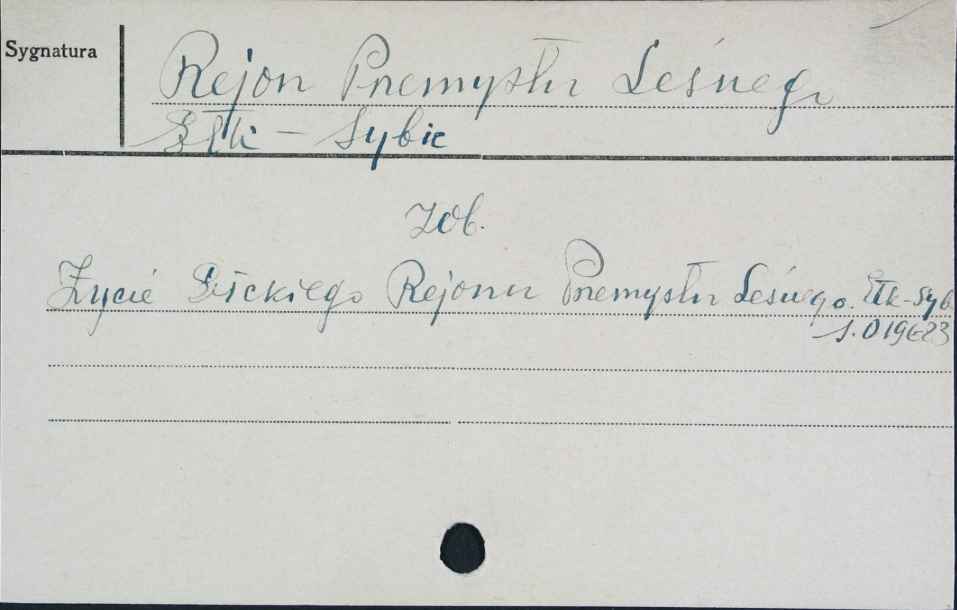 Sygnatura
Rejon Przemysłu Leśnego
Ełk – Sybie
Zob.
Życie Ełckiego Rejonu Przemysłu Leśnego. Ełk-Syb.